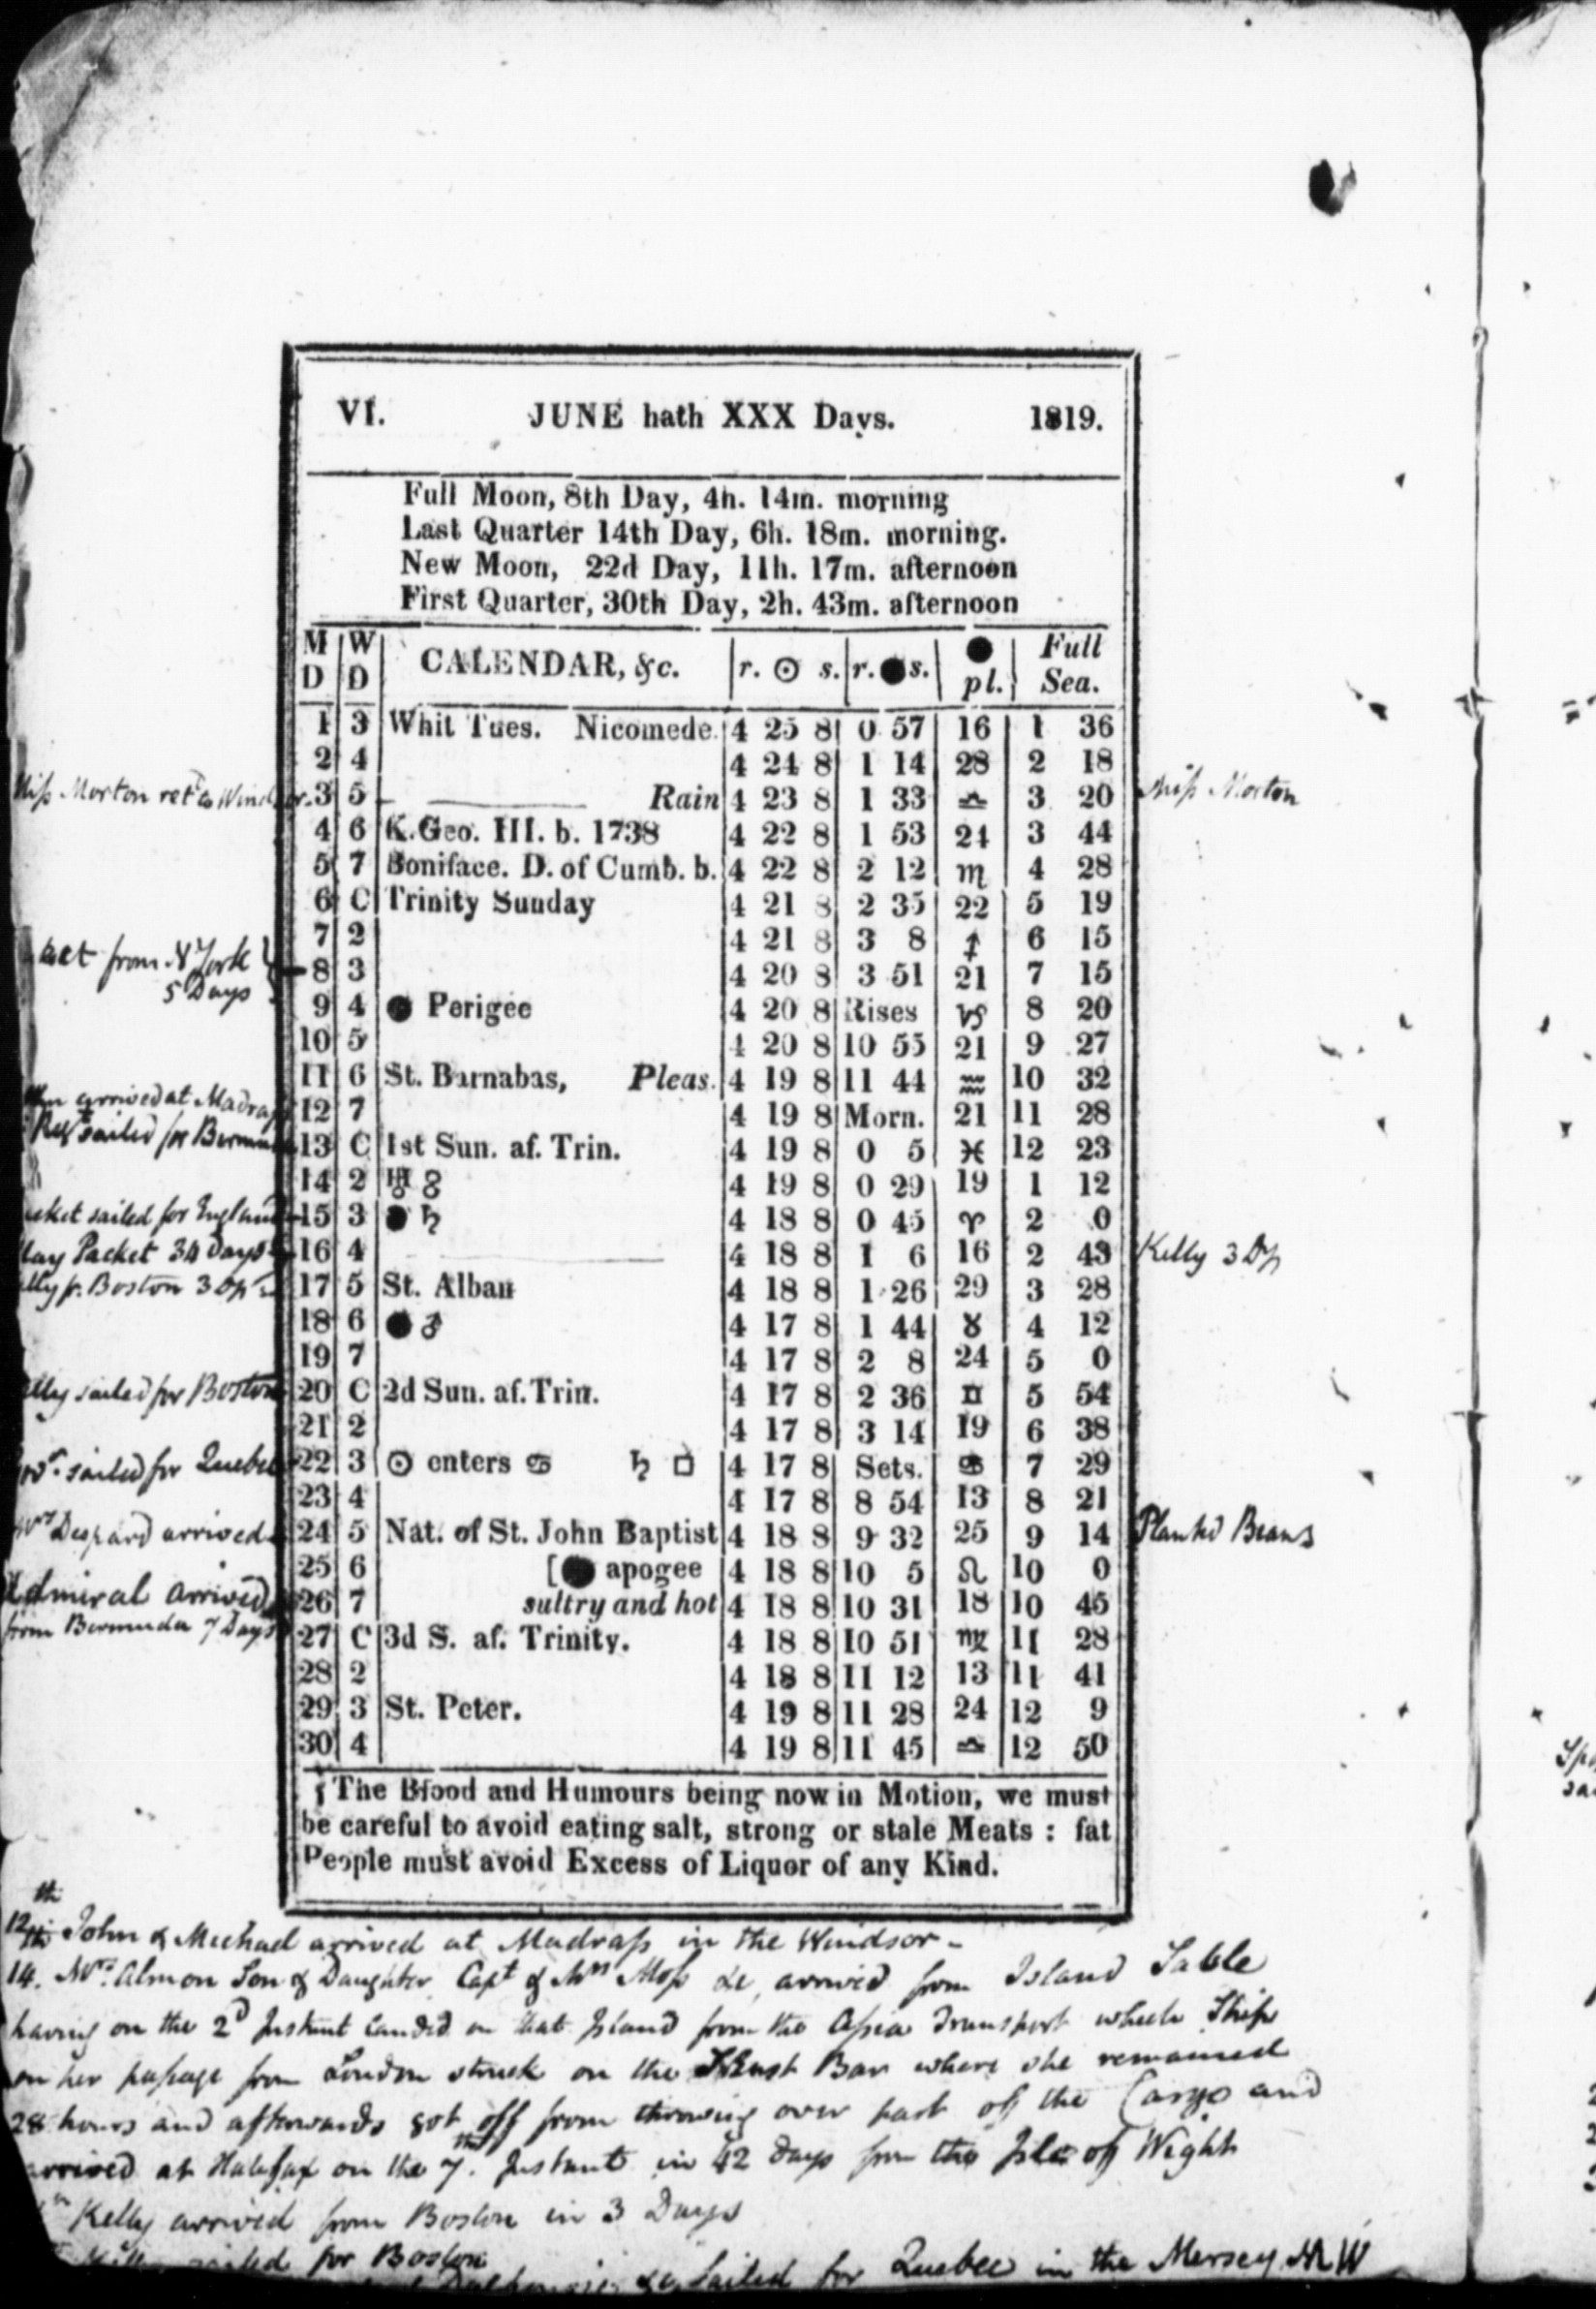 VI. JUNE hath XXX Days. 1819.
Full Moon, 8th Day, 4h. 14m. morning
Last Quarter 14th Day, 6h. 18m. morning.
New Moon, 22d Day, 11h. 17m. afternoon
First Quarter, 30th Day, 2h. 43m. afternoon
M D W D CALENDAR, &c. r. ☉ s. r. ● s. ● pl. Full Sea.
1 3 Whit Tues. Nicomede. 4 25 8 0 57 16 1 36
2 4 4 24 8 1 14 28 2 18
Miss Morton retd to Windsor. 3 5 Rain 4 23 8 1 33 ♎ 3 20 Miss Morton
4 6 K. Geo. III. b. 1738 4 22 8 1 53 24 3 44
5 7 Boniface. D. of Cumb. b. 4 22 8 2 12 ♏ 4 28
6 C Trinity Sunday 4 21 8 2 35 22 5 19
7 2 4 21 8 3 8 ♐ 6 15
from N York 5 Days 8 3 4 20 8 3 51 21 7 15
9 4 ● Perigee 4 20 8 Rises ♑ 8 20
10 5 4 20 8 10 55 21 9 27
11 6 St. Barnabas, Pleas. 4 19 8 11 44 ♒ 10 32
arrived at Madrass 12 7 4 19 8 Morn. 21 11 28
Regt sailed for Bermuda 13 C 1st Sun. af. Trin. 4 19 8 0 5 ♓ 12 23
14 2 ♅ ☍ 4 19 8 0 29 19 1 12
sailed for England 15 3 ● ♄ 4 18 8 0 45 ♈ 2 0
Packet 34 Days 16 4 4 18 8 1 6 16 2 43 Kelly 3 Dys
fr. Boston 3 Dys 17 5 St. Alban 4 18 8 1 26 29 3 28
18 6 ● ♂ 4 17 8 1 44 ♉ 4 12
19 7 4 17 8 2 8 24 5 0
sailed for Boston 20 C 2d Sun. af. Trin. 4 17 8 2 36 ♊ 5 54
21 2 4 17 8 3 14 19 6 38
sailed for Quebec 22 3 ☉ enters ♋ ♄ □ 4 17 8 Sets. ♋ 7 29
23 4 4 17 8 8 54 13 8 21
Despard arrived 24 5 Nat. of St. John Baptist 4 18 8 9 32 25 9 14 Planted Beans
25 6 [● apogee 4 18 8 10 5 ♌ 10 0
Admiral arrived 26 7 sultry and hot 4 18 8 10 31 18 10 45
from Bermuda 7 Days 27 C 3d S. af. Trinity. 4 18 8 10 51 ♍ 11 28
28 2 4 18 8 11 12 13 11 41
29 3 St. Peter. 4 19 8 11 28 24 12 9
30 4 4 19 8 11 45 ♎ 12 50
The Blood and Humours being now in Motion, we must
be careful to avoid eating salt, strong or stale Meats : fat
People must avoid Excess of Liquor of any Kind.
12th John & Michael arrived at Madrass in the Windsor -
14. Mrs. Almon Son & Daughter Capt & Mrs Moss &c, arrived from Island Sable
having on the 2d Instant landed on that Island from the Asia Transport which Ship
on her passage from London struck on the Bar where she remained
28 hours and afterwards got off from throwing over part of the Cargo and
arrived at Halifax on the 7th. Instant in 42 days from the Isle of Wight
Kelly arrived from Boston in 3 Days
sailed for Boston
&c Sailed for Quebec in the Mersey